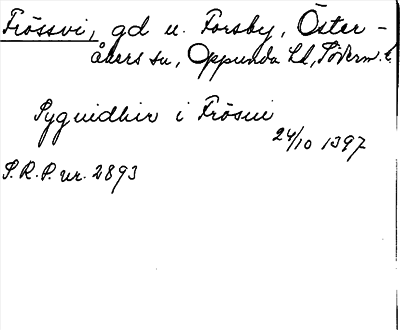 Frössvi, gd u. Forsby, Öster-
åkers sn, Oppunda hd, Söderm. l.
Sygnidhir i Frösui
24/10 1397
S.R.P. nr. 2893